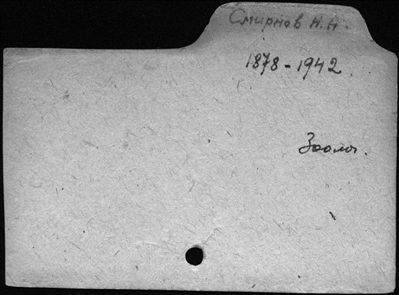 Смирнов Н.Н.
1878-1942
Зоолог.